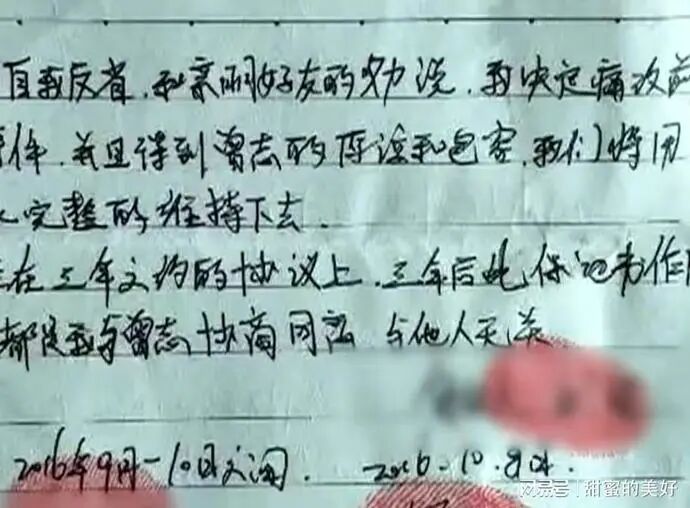 自我反省,和亲朋好友的劝说,我决定痛改前
并且得到曾志的原谅和包容,我们将用
完整的维持下去.
在三年之约的协议上,三年后此保证书作
都是我与曾志协商同意 与他人无关
2016年9月-10日之间. 2016.10.8日.
网易号 | 甜蜜的美好